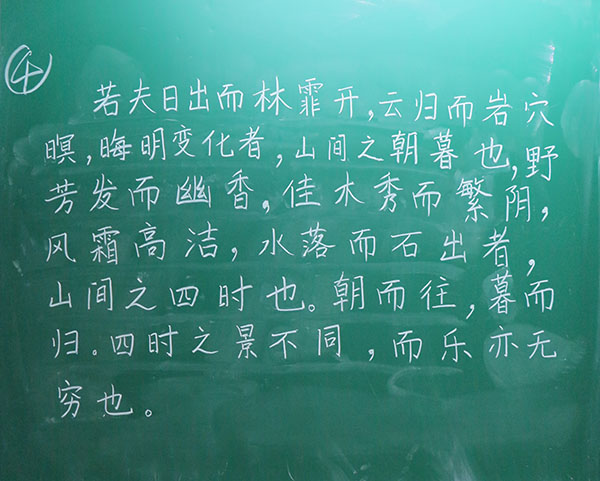 ④
若夫日出而林霏开,云归而岩穴
暝,晦明变化者,山间之朝暮也,野
芳发而幽香,佳木秀而繁阴,
风霜高洁,水落而石出者,
山间之四时也。朝而往,暮而
归。四时之景不同,而乐亦无
穷也。